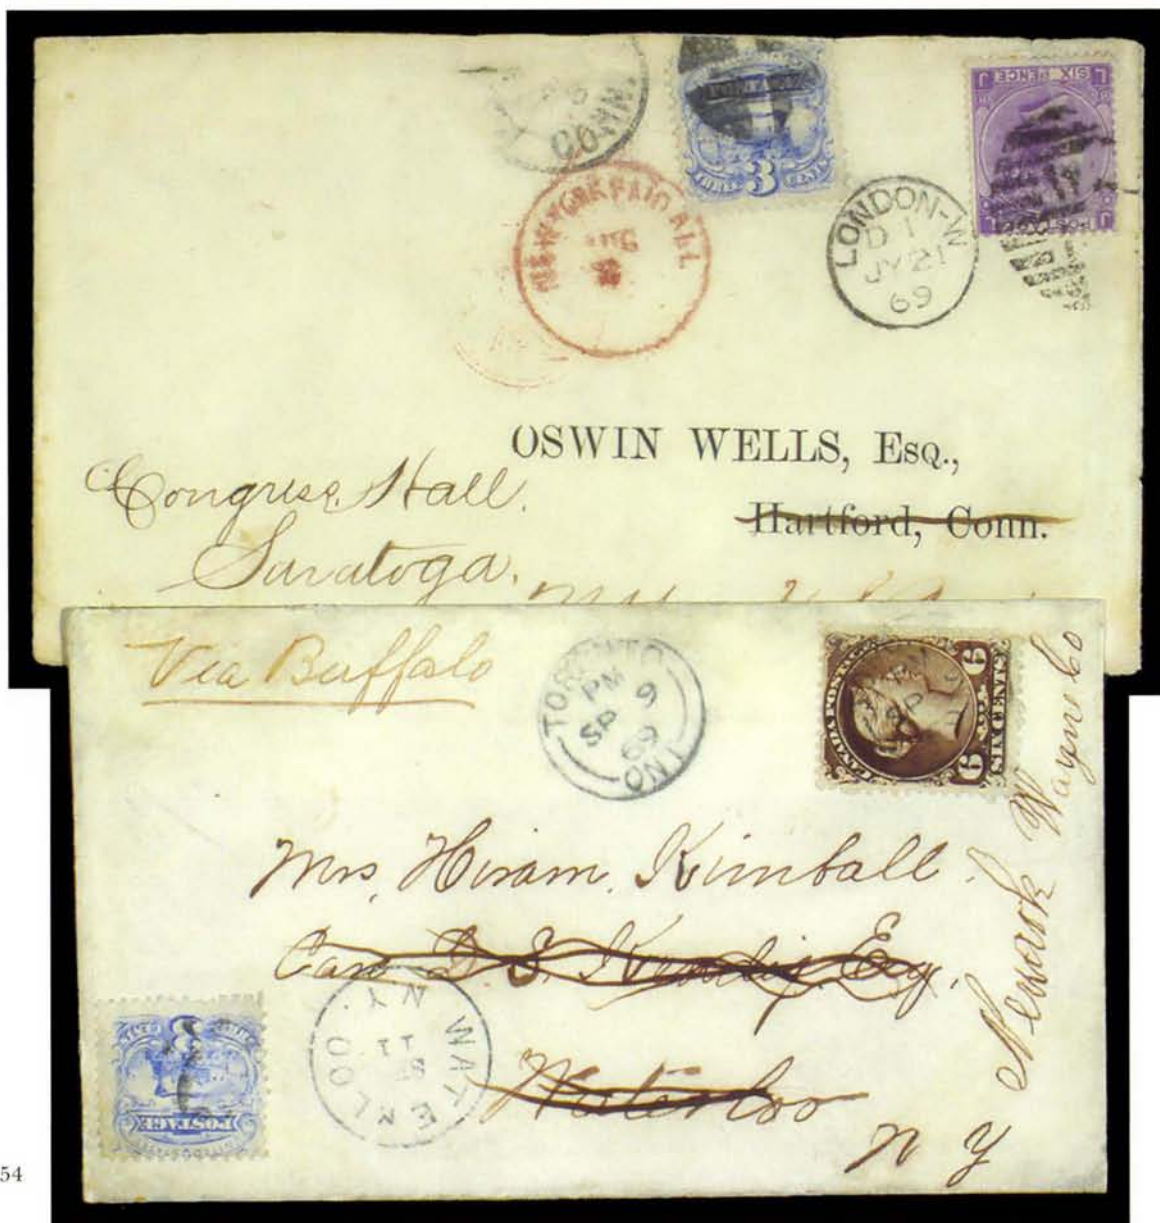 CONN.
THREE 3 CENTS
SIX PENCE
L J
POSTAGE
J L
NEW YORK PAID ALL
AUG
LONDON-W
D 1
JY 21
69
OSWIN WELLS, Esq.,
Hartford, Conn.
Congress Hall.
Saratoga.
Via Buffalo
TORONTO
PM
SP 9
69
ONT
CANADA POSTAGE
6 6
SIX CENTS
Mrs. Hiram. Kimball.
Esq.
Waterloo
N Y
Newark Wayne Co
WATERLOO
N.Y.
SEP
11
3
POSTAGE
54